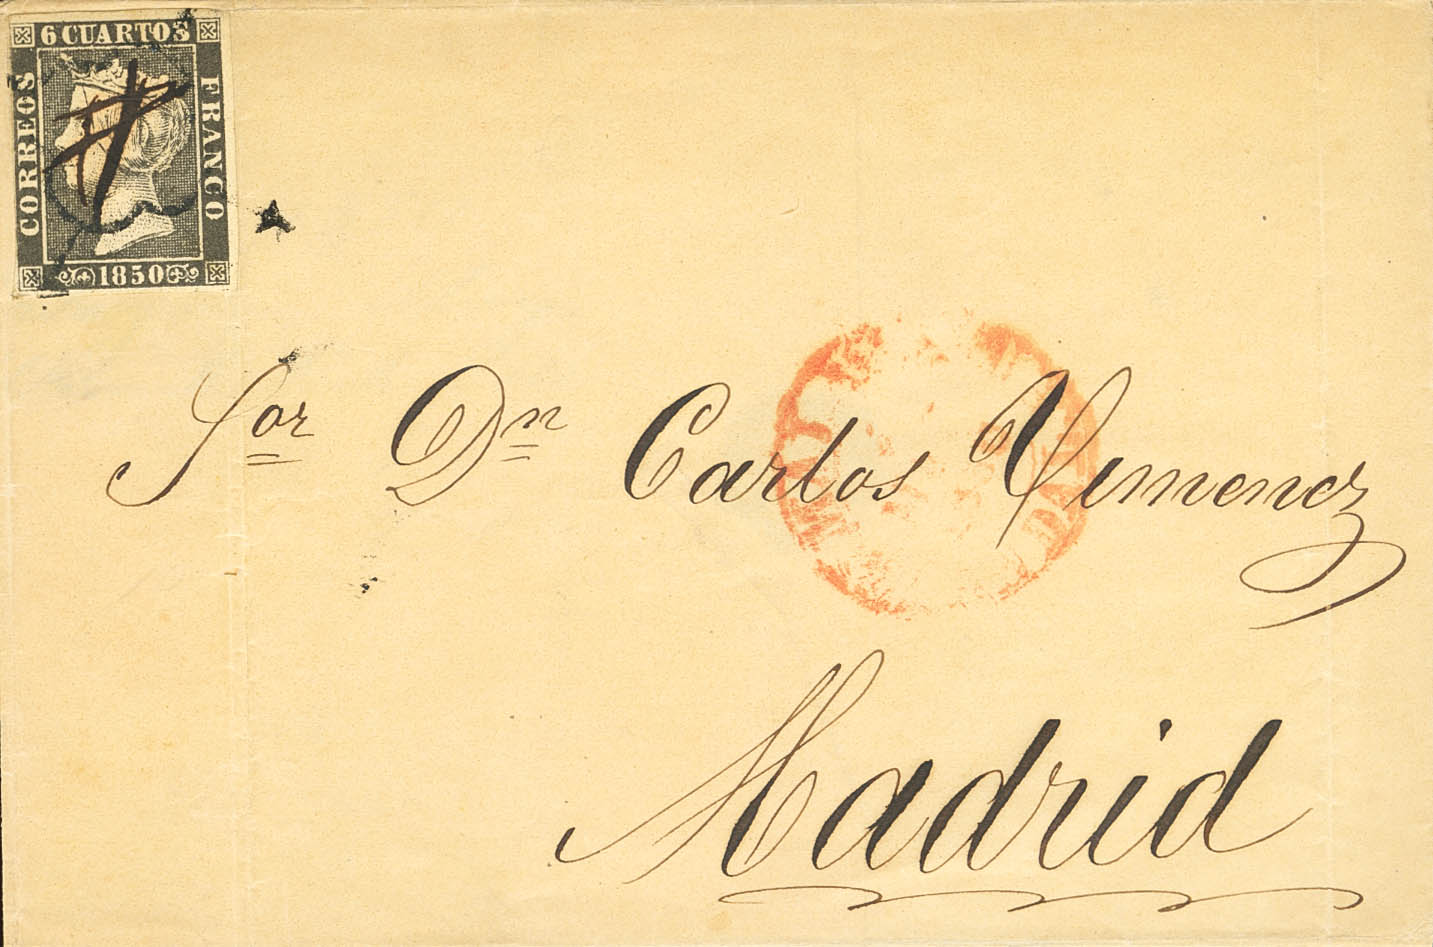 6 CUARTOS
CORREOS
FRANCO
1850
Sor Dn Carlos Ximenez
Madrid